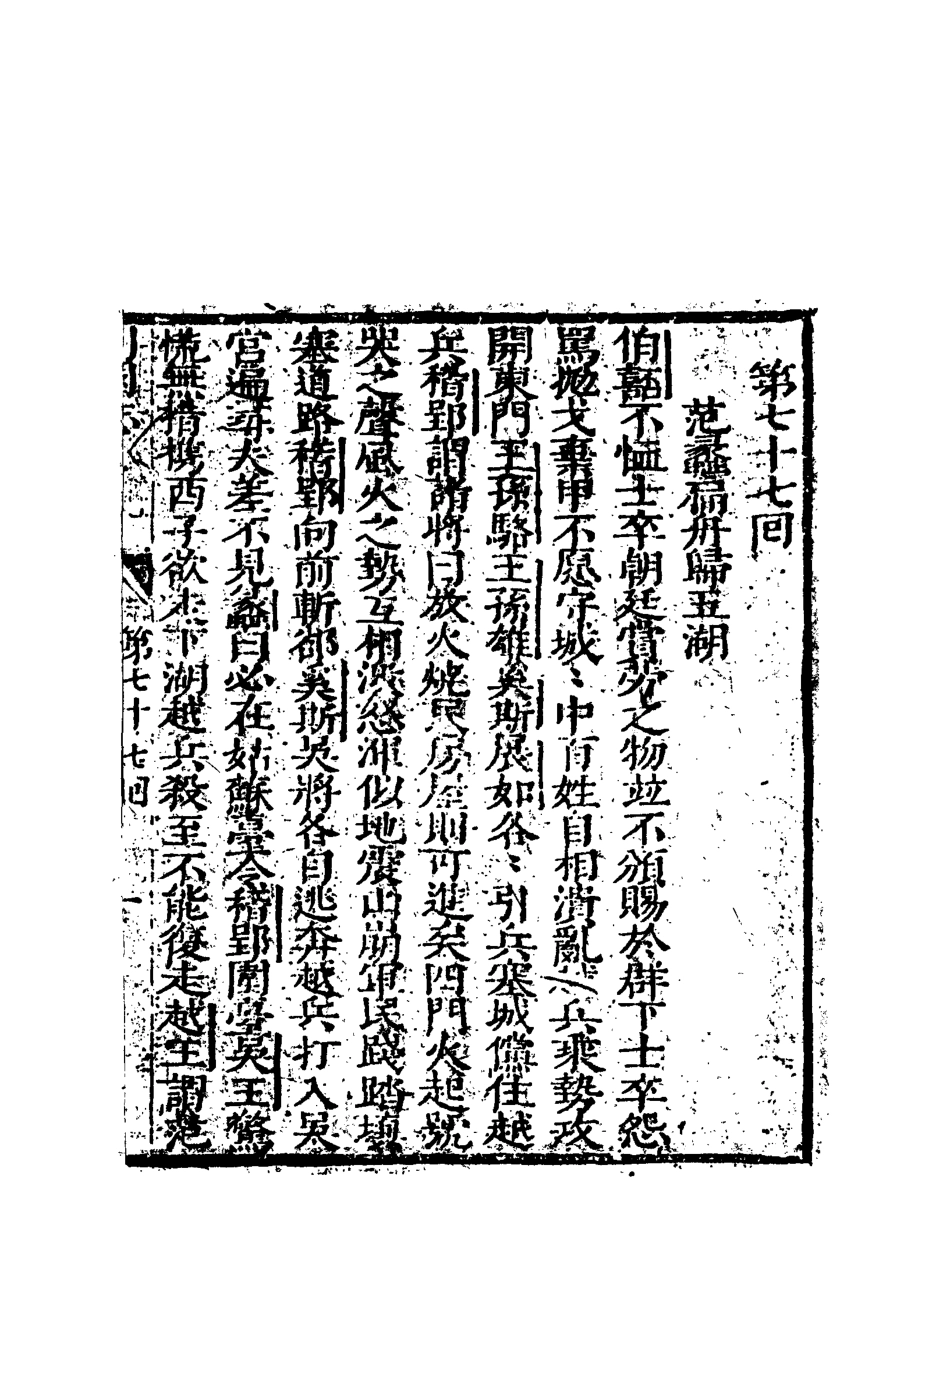 第七十七回
范蠡扁舟歸五湖
伯嚭不恤士卒朝廷賞勞之物竝不頒賜於群下士卒怨
罵拋戈棄甲不愿守城〻中百姓自相潰亂越兵乘勢攻
開東門王孫駱王孫雄奚斯展如各〻引兵塞城儅住越
兵稽郢謂諸將曰放火燒民房屋則可進矣四門火起號
哭之聲風火之勢互相激怒渾似地震山崩軍民踐踏填
塞道路稽郢向前斬郤奚斯吳將各自逃奔越兵打入吳
宮遍尋夫差不見蠡曰必在姑蘇臺令稽郢圍臺吳王驚
慌無措携西子欲走下湖越兵殺至不能復走越王謂范
第七十七回 一